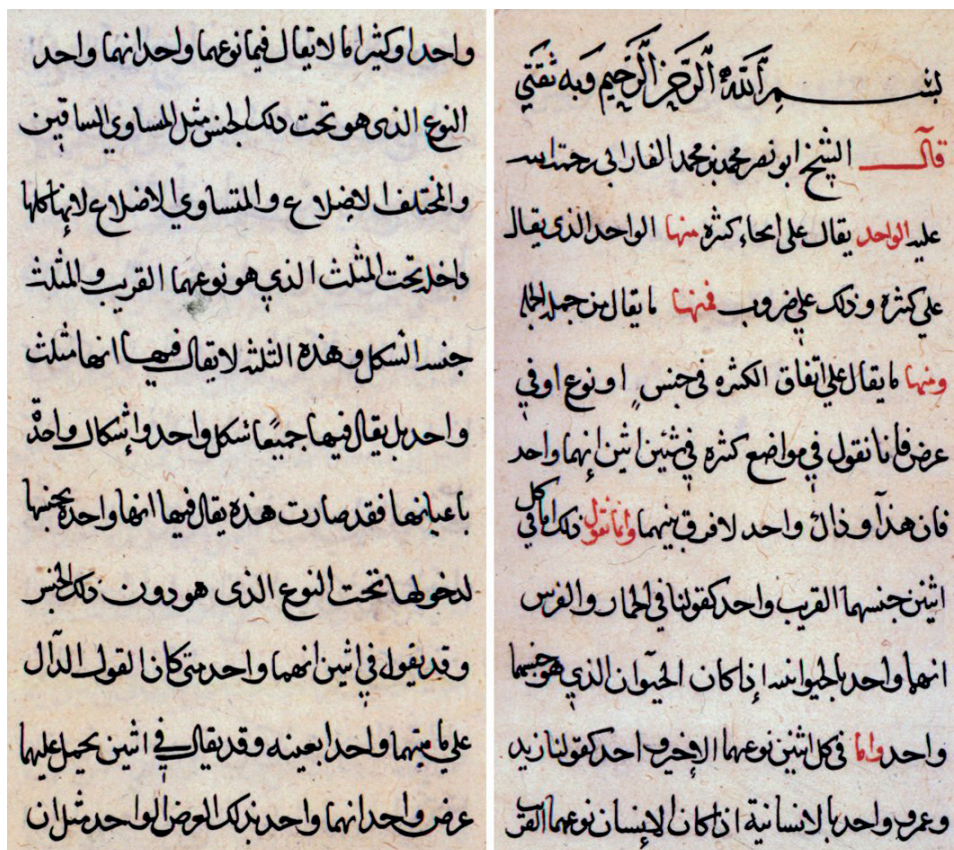 بسم الله الرحمن الرحيم وبه ثقتي
قال الشيخ ابو نصر محمد بن محمد الفارابي رحمة الله
عليه الواحد يقال على انحاء كثره منها الواحد الذي يقال
علي كثره وذلك علي ضروب فمنها ما يقال من جمله
ومنها ما يقال علي اتفاق الكثره في جنس او نوع او في
عرض فانا نقول في مواضع كثره في شئين اثنين إنهما واحد
فان هذا وذاك واحد لا فرق بينهما وانا نقول ذلك اما في كل
اثنين جنسهما القريب واحد كقولنا في الحمار والفرس
انهما واحد بالحيوانيه إذا كان الحيوان الذي هو جنسهما
واحد واما في كل اثنين نوعهما الاخير واحد كقولنا زيد
وعمرو واحد بالانسانية اذا كان الإنسان نوعهما القريب
واحدا وكثيرا ما لا يقال فيما نوعهما واحد انهما واحد
النوع الذي هو تحت ذلك الجنس مثل المساوي الساقين
والمختلف الاضلاع والمتساوي الاضلاع لانها كلها
داخله تحت المثلث الذي هو نوعهما القريب والمثلث
جنسه الشكل وهذه الثلثه لا يقال فيها انها مثلث
واحد بل يقال فيها جميعا شكل واحد وإشكال واحدة
باعيانها فقد صارت هذه يقال فيها انها واحده بجنسها
لدخولها تحت النوع الذي هو دون ذلك الجنس
وقد يقول في اثنين انهما واحد متى كان القول الدآل
علي ما ميتهما واحدا بعينه وقد يقال في اثنين يحمل عليهما
عرض واحد انهما واحد بذلك العرض الواحد مثل ان